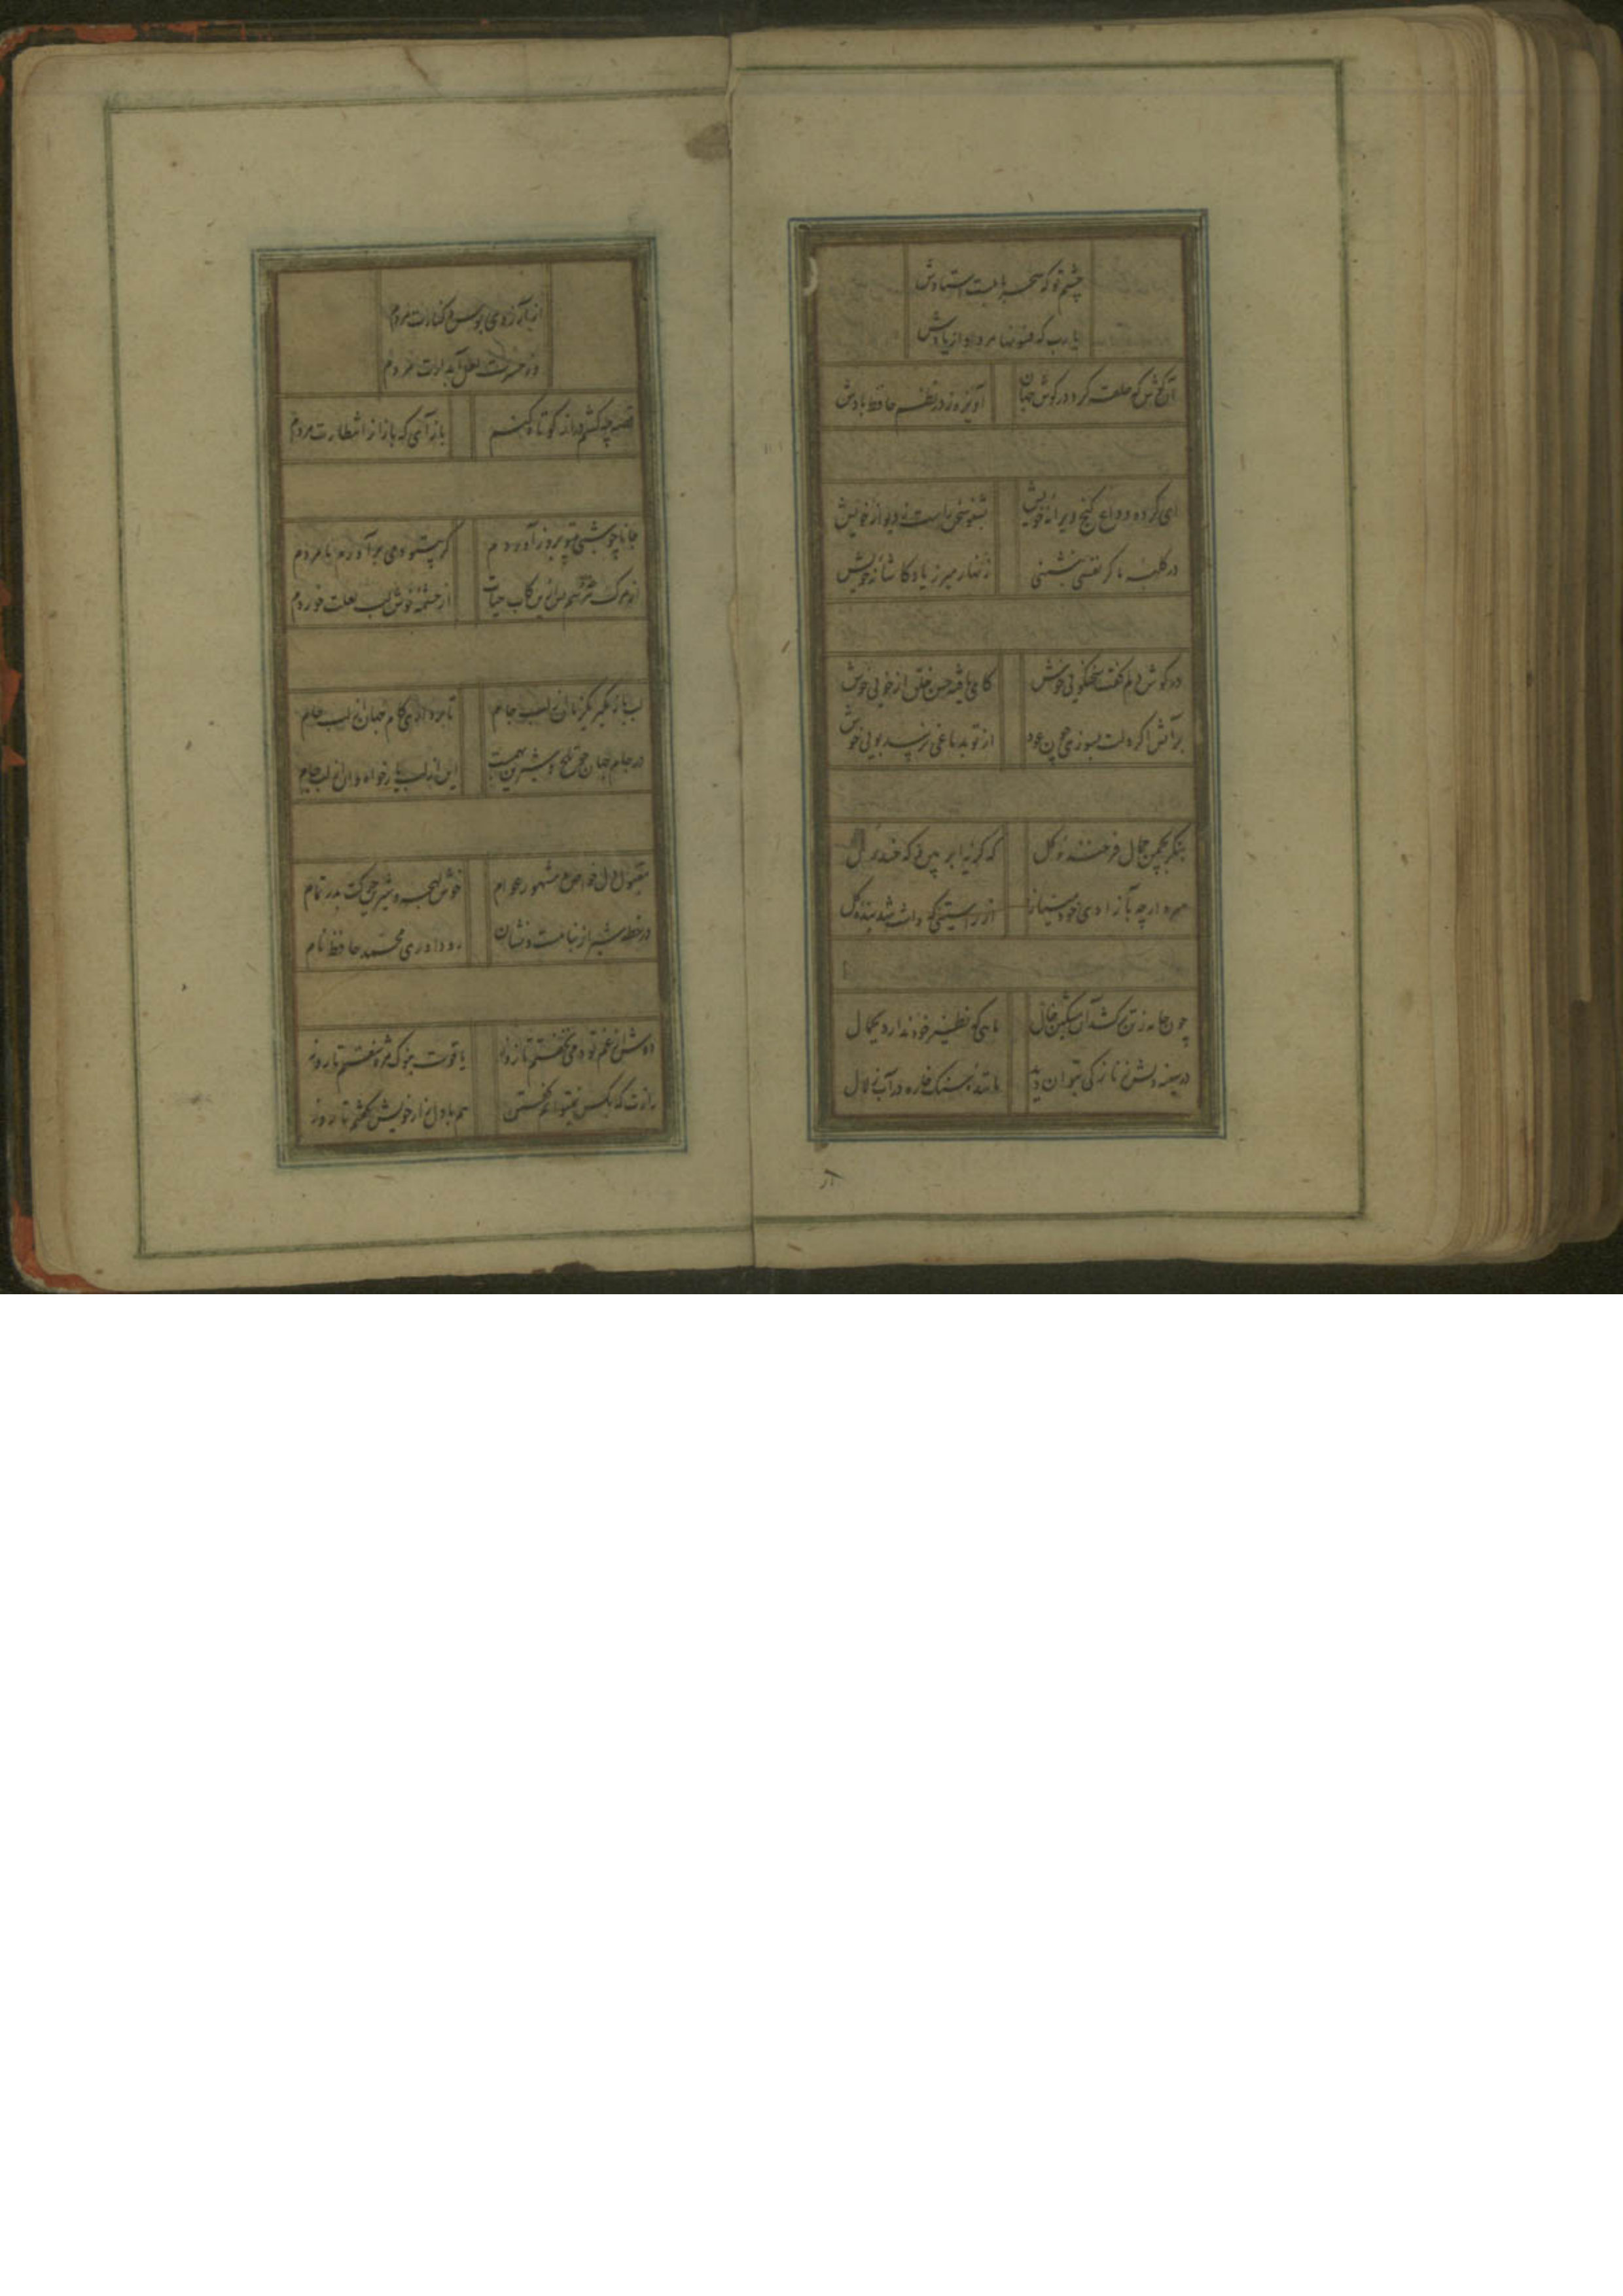 چشم تو که سحر بابلست استادش
یا رب که فسونها مرواد از یادش
آن گوش که حلقه کرد در گوش جهان آویزه ز در نظم حافظ بادش
ای کرده وداع کنج ویرانه خویش بشنو سخن راست ز دیوانه خویش
در کلبه ما گر نفسی بنشینی زنهار مبر ز یاد کاشانه خویش
در گوش دلم گفت سخنگویی خوش کای یافته حسن خلق از خویی خوش
بر آتش اگر دلت بسوزد چون عود از تو بدماغی نرسد بویی خوش
بنگر بچمن جمال فرخنده گل که گریه ابر بین و که خنده گل
سرو ارچه بآزادی خود از راستیی که داشت شد بنده گل
چون جامه ز تن کشد آن مشکین خال ماهی که نظیر خود ندارد بجمال
در سینه دلش ز نازکی بتوان دید مانند سنگ خاره در آب زلال
آرزوی بوس و کنارت مردم
در حسرت لعل آبدارت مردم
قصه چه کشم دراز کوتاه کنم باز آی که باز از انتظارت مردم
جانا چو شبی با تو بروز آوردم گر بیتو دمی برآورم نامردم
از مرگ نترسم پس ازین کاب حیات از چشمه نوش لب لعلت خوردم
لب باز مگیر یکزمان از لب جام تا بردای کام جهان از لب جام
در جام جهان چو تلخ و شیرین بهمست این از لب یار خواه و آن از لب جام
مقبول دل خواص و مشهور عوام خوش لهجه و حرکت بدر تمام
در خطه شیراز بنامست و نشان داوری محمد حافظ نام
دوش از غم تو دمی نخفتم تا روز یاقوت بنوک مژه سفتم تا روز
رازت که بکس نمیتوانم گفتن هم با دل زار خویش گفتم تا روز